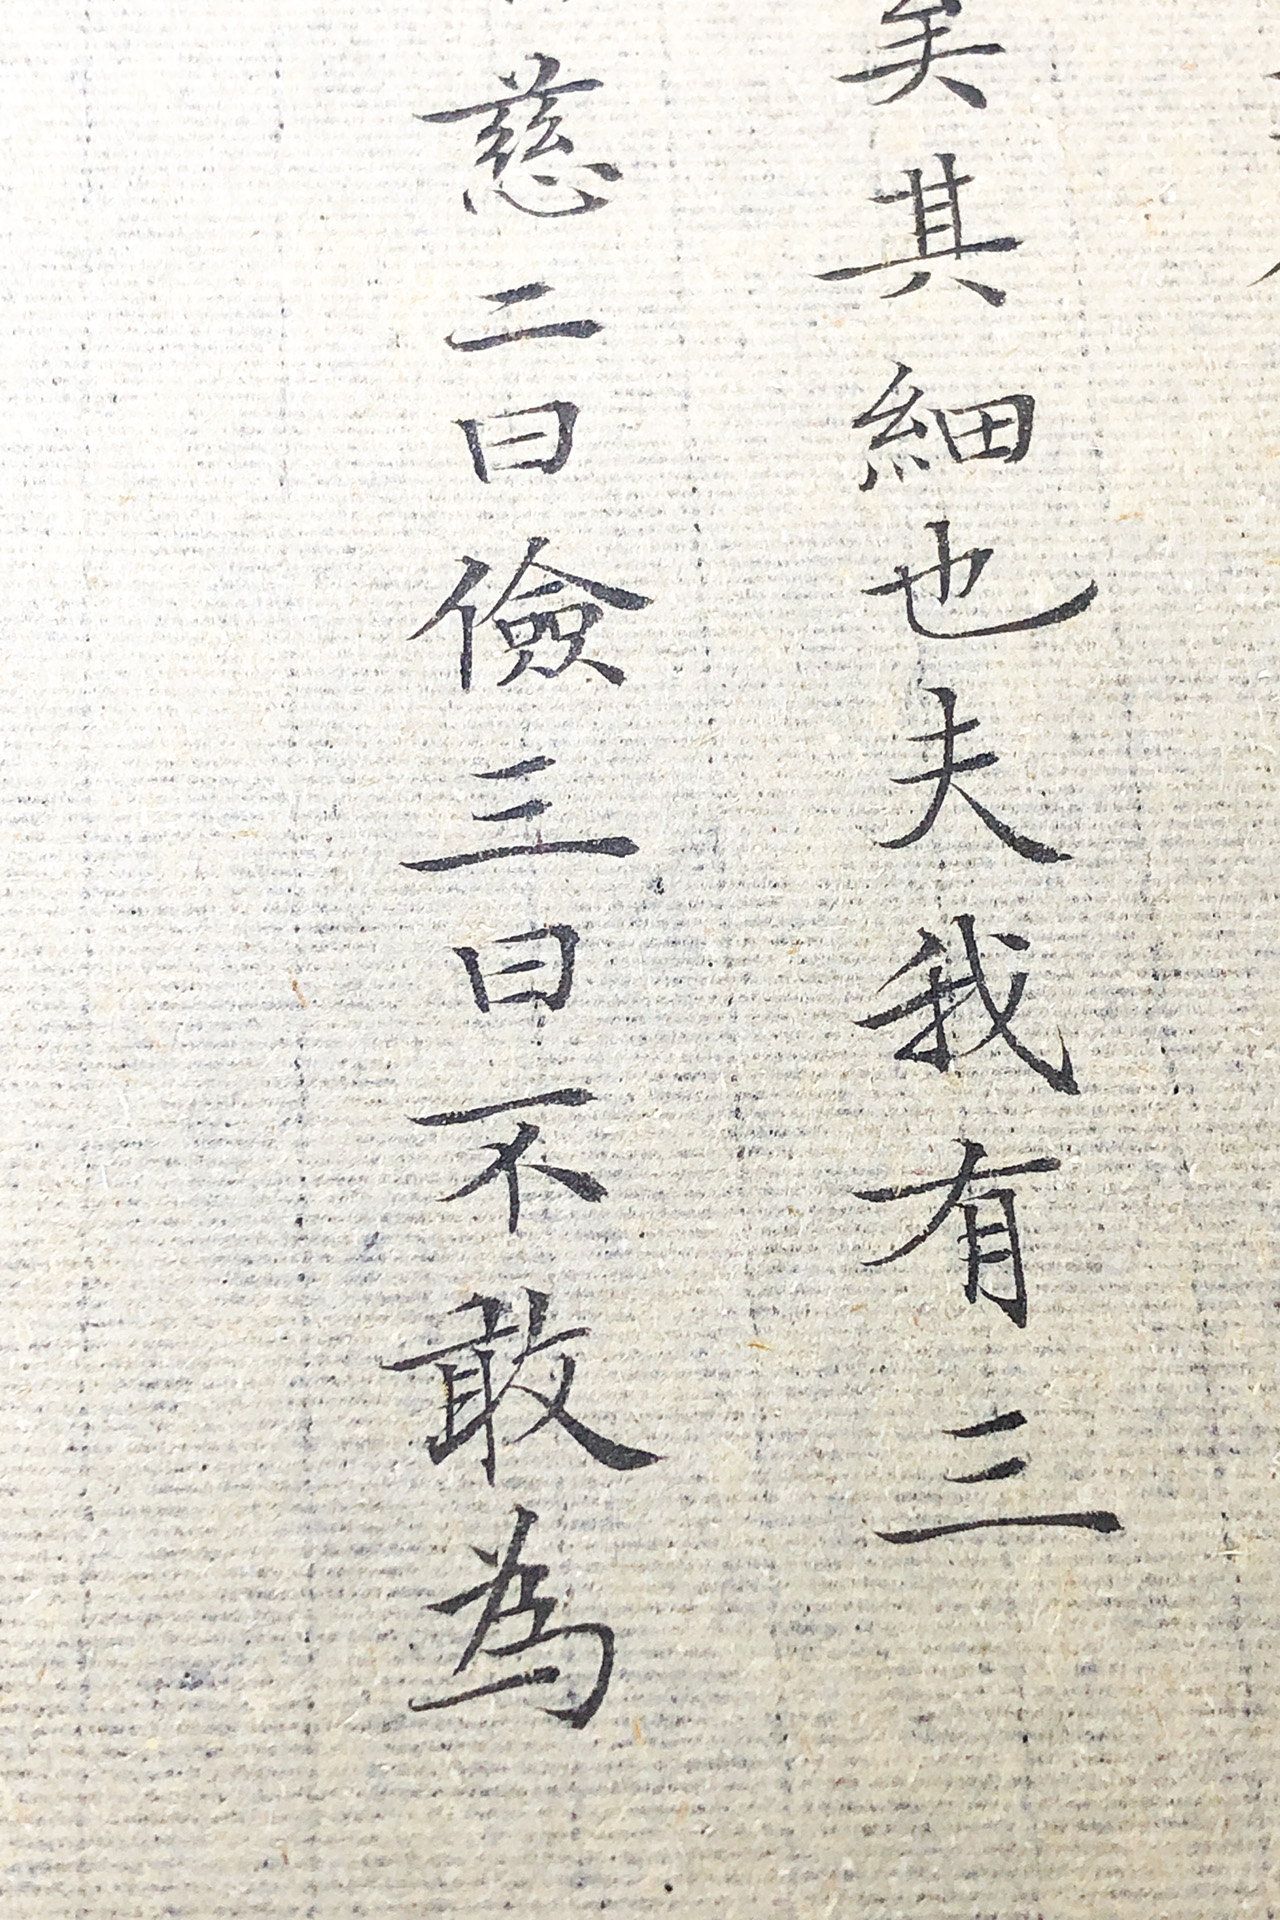 矣其細也夫我有三
慈二曰儉三曰不敢為